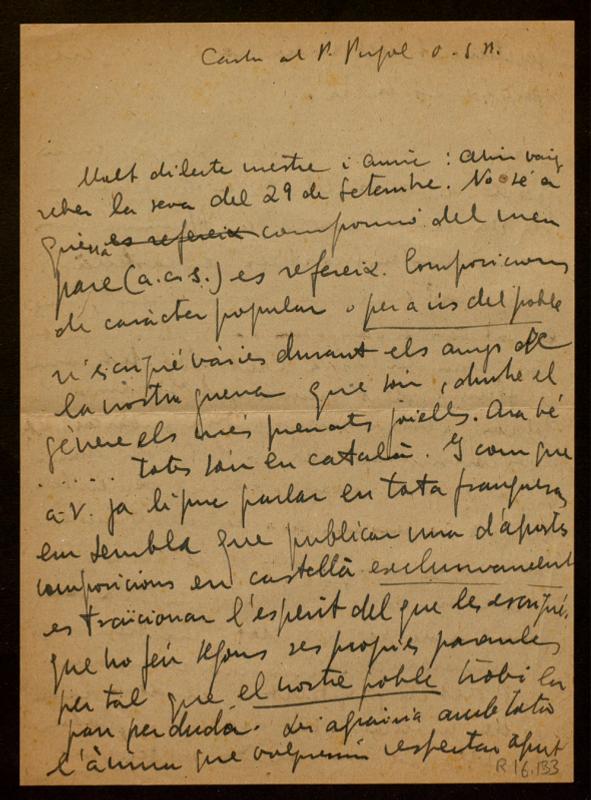 Carta al P. Pujol O.S.B.
Molt dilecte mestre i amic : ahir vaig
rebre la seva del 29 de Setembre. No sé a
quina es refereix composició del meu
pare (a.c.s.) es refereix. Composicions
de caràcter popular o per a ús del poble
n'escrigué vàries durant els anys de
la nostra guerra que són, dintre el
gènere els més preuats joiells. Ara bé
..... totes són en català. Y com que
a V. ja li puc parlar en tota franquesa
em sembla que publicar una d'aquestes
composicions en castellà exclusivament
es traïcionar l'esperit del que les escrigué,
que ho féu segons ses propies paraules
per tal que el nostre poble trobi la
pau perduda. Li agrairia amb tota
l'ànima que volguessin respectar aquest
R 16.133